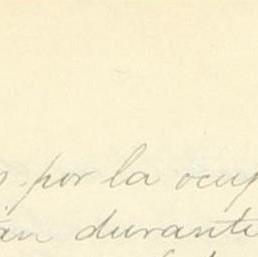 por la ocup
an durante